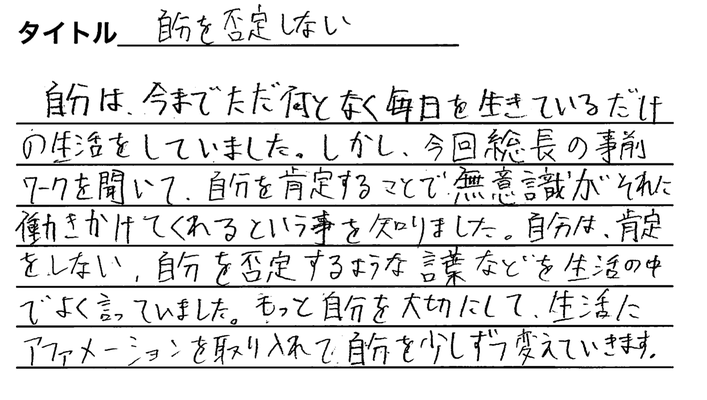 タイトル 自分を否定しない
自分は、今までただ何となく毎日を生きているだけ
の生活をしていました。しかし、今回総長の事前
ワークを聞いて、自分を肯定することで無意識がそれに
働きかけてくれるという事を知りました。自分は、肯定
をしない、自分を否定するような言葉などを生活の中
でよく言っていました。もっと自分を大切にして、生活に
アファメーションを取り入れて自分を少しずつ変えていきます。